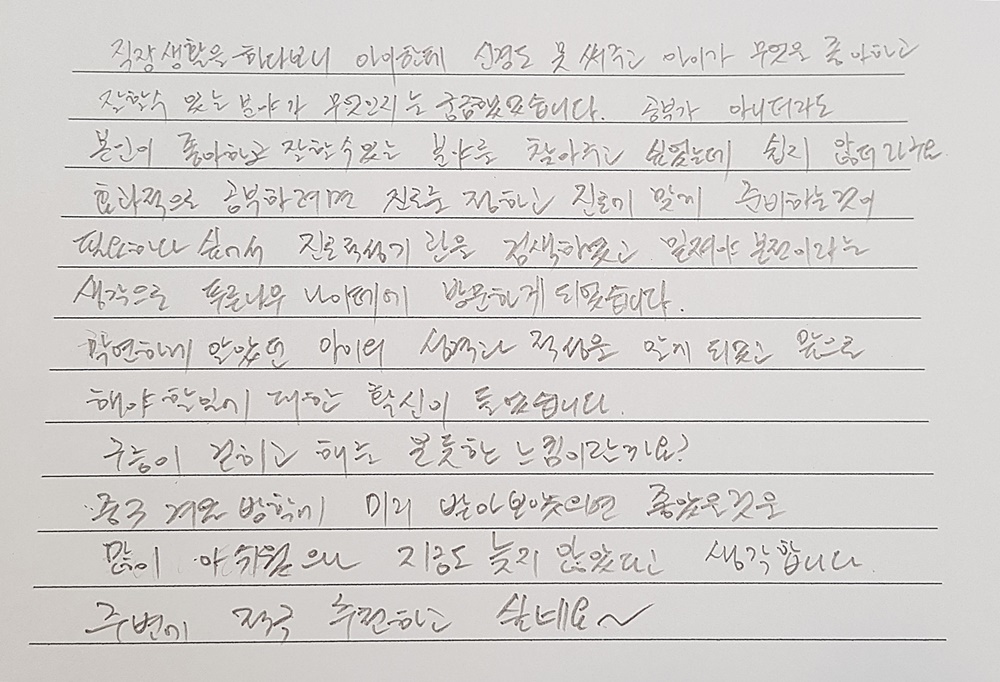 직장생활을 하다보니 아이한테 신경도 못 써주고 아이가 무엇을 좋아하고
잘할수 있는 분야가 무엇인지는 궁금했었습니다. 공부가 아니더라도
본인이 좋아하고 잘할수있는 분야를 찾아주고 싶었는데 쉽지 않더라구요.
효과적으로 공부하려면 진로를 정하고 진로에 맞게 준비하는것이
필요하다 싶어서 진로적성기관을 검색하였고 밑져야 본전이라는
생각으로 푸른나무 나이테에 방문하게 되었습니다.
막연하게 알았던 아이의 성격과 적성을 알게 되었고 앞으로
해야 할일에 대한 확신이 들었습니다.
구름이 걷히고 해는 분듯한 느낌이랄까요?
중3 겨울 방학에 미리 받아보았으면 좋았을것을
많이 아쉬웠으나 지금도 늦지 않았다고 생각합니다
주변에 적극 추천하고 싶네요~